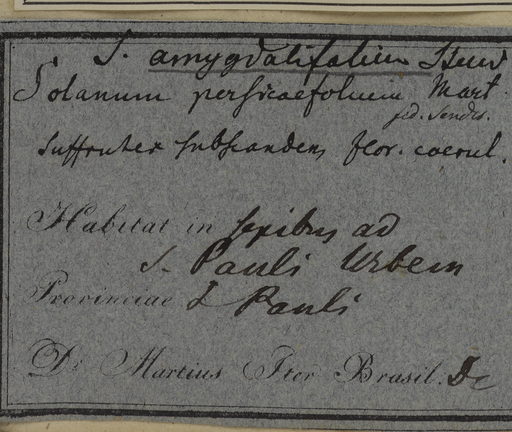 S. amygdalifolium Steud
Solanum persicaefolium Mart
sid. Sendtn.
Suffrutex subscandens, flor. coerul.
Habitat in sepibus ad
S. Pauli Urbem
Provinciae S. Pauli
Dr. Martius Iter Brasil. Dc